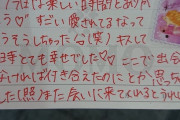 ては楽しい時間とあり
う♡♡ すごい愛されてるなって
うぞうしちゃった分(笑) キスして
日寺とても幸せでした♡ ここで出会
なければ付き合えたのにとか思っちゃ
した(照)また会いに来てくれるとうれ